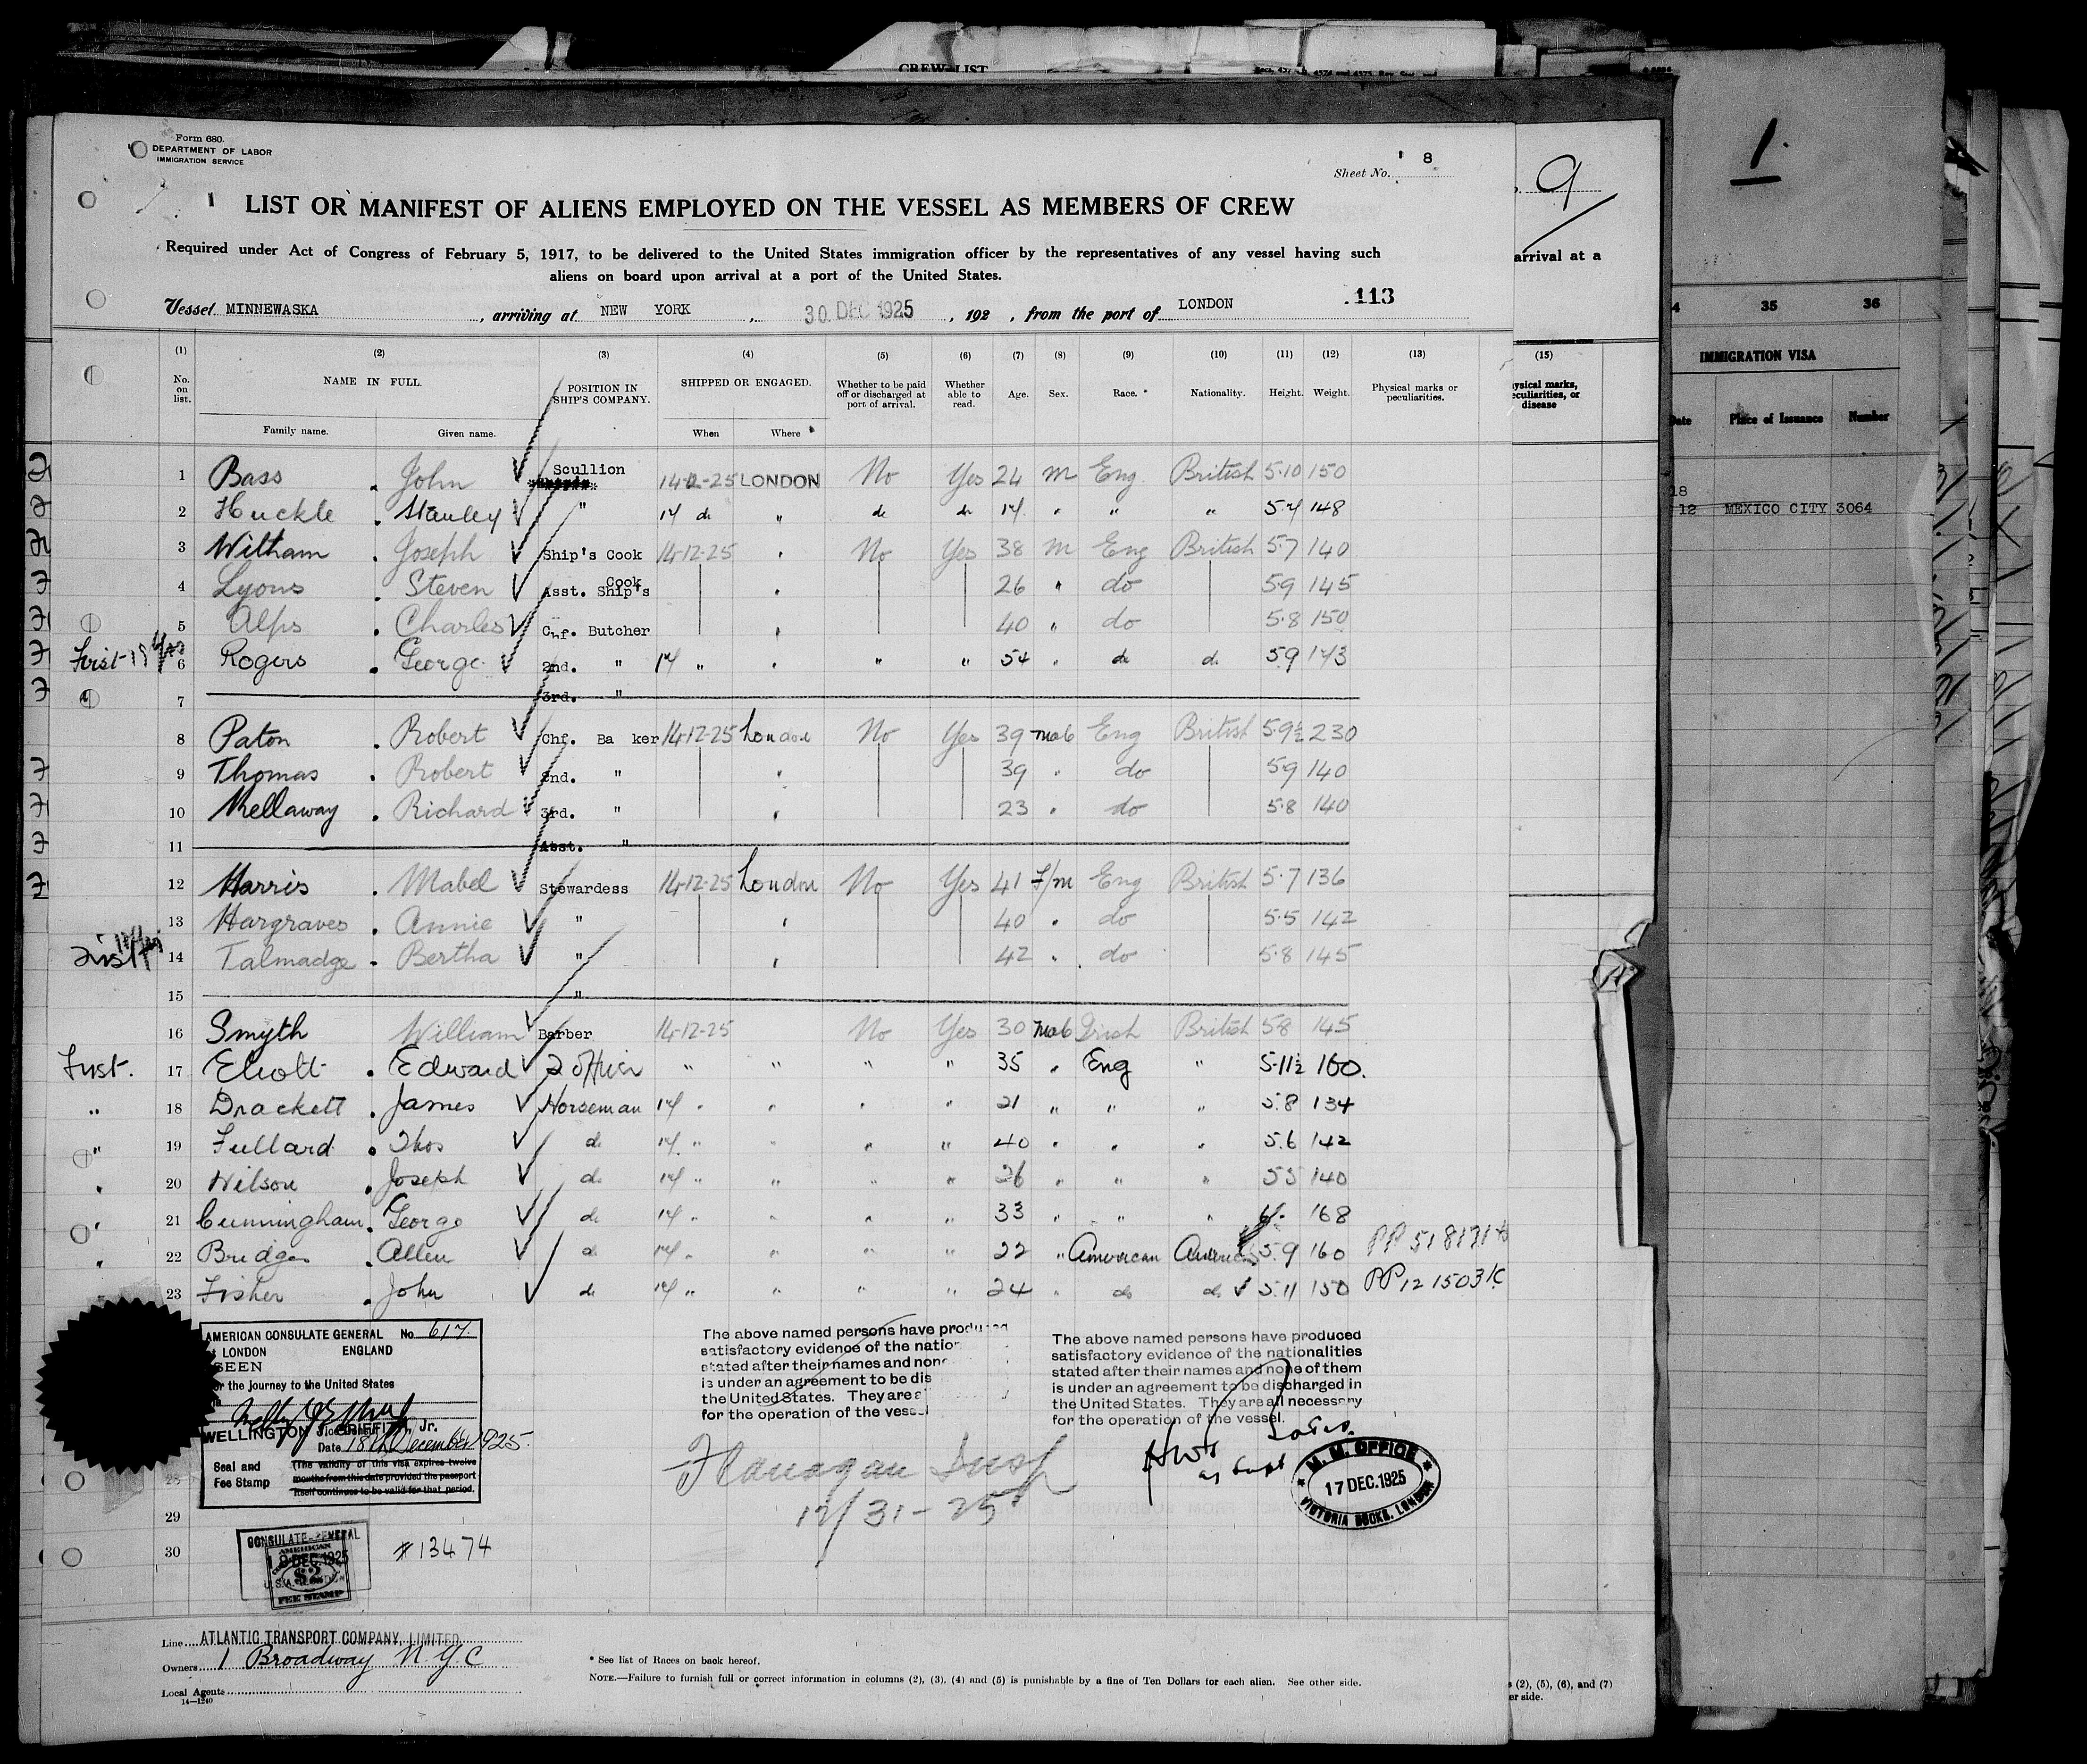 CREW LIST
Form 680.
DEPARTMENT OF LABOR
IMMIGRATION SERVICE
Sheet No. 8
LIST OR MANIFEST OF ALIENS EMPLOYED ON THE VESSEL AS MEMBERS OF CREW
Required under Act of Congress of February 5, 1917, to be delivered to the United States immigration officer by the representatives of any vessel having such
aliens on board upon arrival at a port of the United States.
Vessel MINNEWASKA, arriving at NEW YORK, 30 DEC 1925, 192 , from the port of LONDON .113
(1) (2) (3) (4) (5) (6) (7) (8) (9) (10) (11) (12) (13)
No. on list. NAME IN FULL. POSITION IN SHIP'S COMPANY. SHIPPED OR ENGAGED. Whether to be paid off or discharged at port of arrival. Whether able to read. Age. Sex. Race.* Nationality. Height. Weight. Physical marks or peculiarities.
Family name. Given name. When Where
1 Bass John Scullion 14-12-25 LONDON No Yes 24 M Eng British 5.10 150
2 Huckle Stanley " 14 do " do do 17 " " " 5.4 148
3 Witham Joseph Ship's Cook 14-12-25 " No Yes 38 M Eng British 5.7 140
4 Lyons Steven Asst. Ship's Cook " 26 " do 5.9 145
5 Alps Charles Chf. Butcher " 40 " do 5.8 150
First
6 Rogers George 2nd. " 14 " " " " 54 " do do 5.9 143
7 3rd. "
8 Paton Robert Chf. Baker 14-12-25 London No Yes 39 Male Eng British 5.9½ 230
9 Thomas Robert 2nd. " " 39 " do 5.9 140
10 Mellaway Richard 3rd. " " 23 " do 5.8 140
11 Asst. "
12 Harris Mabel Stewardess 14-12-25 London No Yes 41 F/m Eng British 5.7 136
13 Hargraves Annie " " 40 " do 5.5 142
14 Talmadge Bertha " " 42 " do 5.8 145
15 "
16 Smyth William Barber 14-12-25 No Yes 30 Male Irish British 5.8 145
First.
17 Eliott Edward 2 Officer " " " " 35 " Eng " 5.11½ 160.
18 Drackett James Horseman 14 " " " " 21 " " " 5.8 134
19 Fullard Thos do 14 " " " " 40 " " " 5.6 142
20 Wilson Joseph do 14 " " " " 26 " " " 5.5 140
21 Cunningham George do 14 " " " " 33 " " " 6/- 168
22 Bridges Allen do 14 " " " " 22 " American American 5.9 160
23 Fisher John do 14 " " " " 24 " do do 5.11 150 PP 121503K
AMERICAN CONSULATE GENERAL No. 617.
at LONDON ENGLAND
SEEN
For the journey to the United States
WELLINGTON GRIFFITH, Jr.
Vice Consul
Date 18th December 1925.
Seal and Fee Stamp
(The validity of this visa expires twelve
months from this date provided the passport
itself continues to be valid for that period.
The above named persons have produced
satisfactory evidence of the nation
stated after their names and none
is under an agreement to be dis
the United States. They are a
for the operation of the vessel
The above named persons have produced
satisfactory evidence of the nationalities
stated after their names and none of them
is under an agreement to be discharged in
the United States. They are all necessary
for the operation of the vessel.
Flanagan Insp
12/31-25
as Supt
M. M. OFFICE
17 DEC. 1925
VICTORIA DOCKS, LONDON
28
29
30
CONSULATE-GENERAL
18 DEC. 1925
AMERICAN
$2
FEE STAMP
#13474
Line ATLANTIC TRANSPORT COMPANY, LIMITED
Owners 1 Broadway N.Y.C
Local Agents
14—1240
* See list of Races on back hereof.
NOTE.—Failure to furnish full or correct information in columns (2), (3), (4) and (5) is punishable by a fine of Ten Dollars for each alien. See other side.
9
arrival at a
(15)
physical marks,
peculiarities, or
disease
(2), (5), (6), and (7)
er side.
1.
4 35 36
IMMIGRATION VISA
Date Place of Issuance Number
18
12 MEXICO CITY 3064